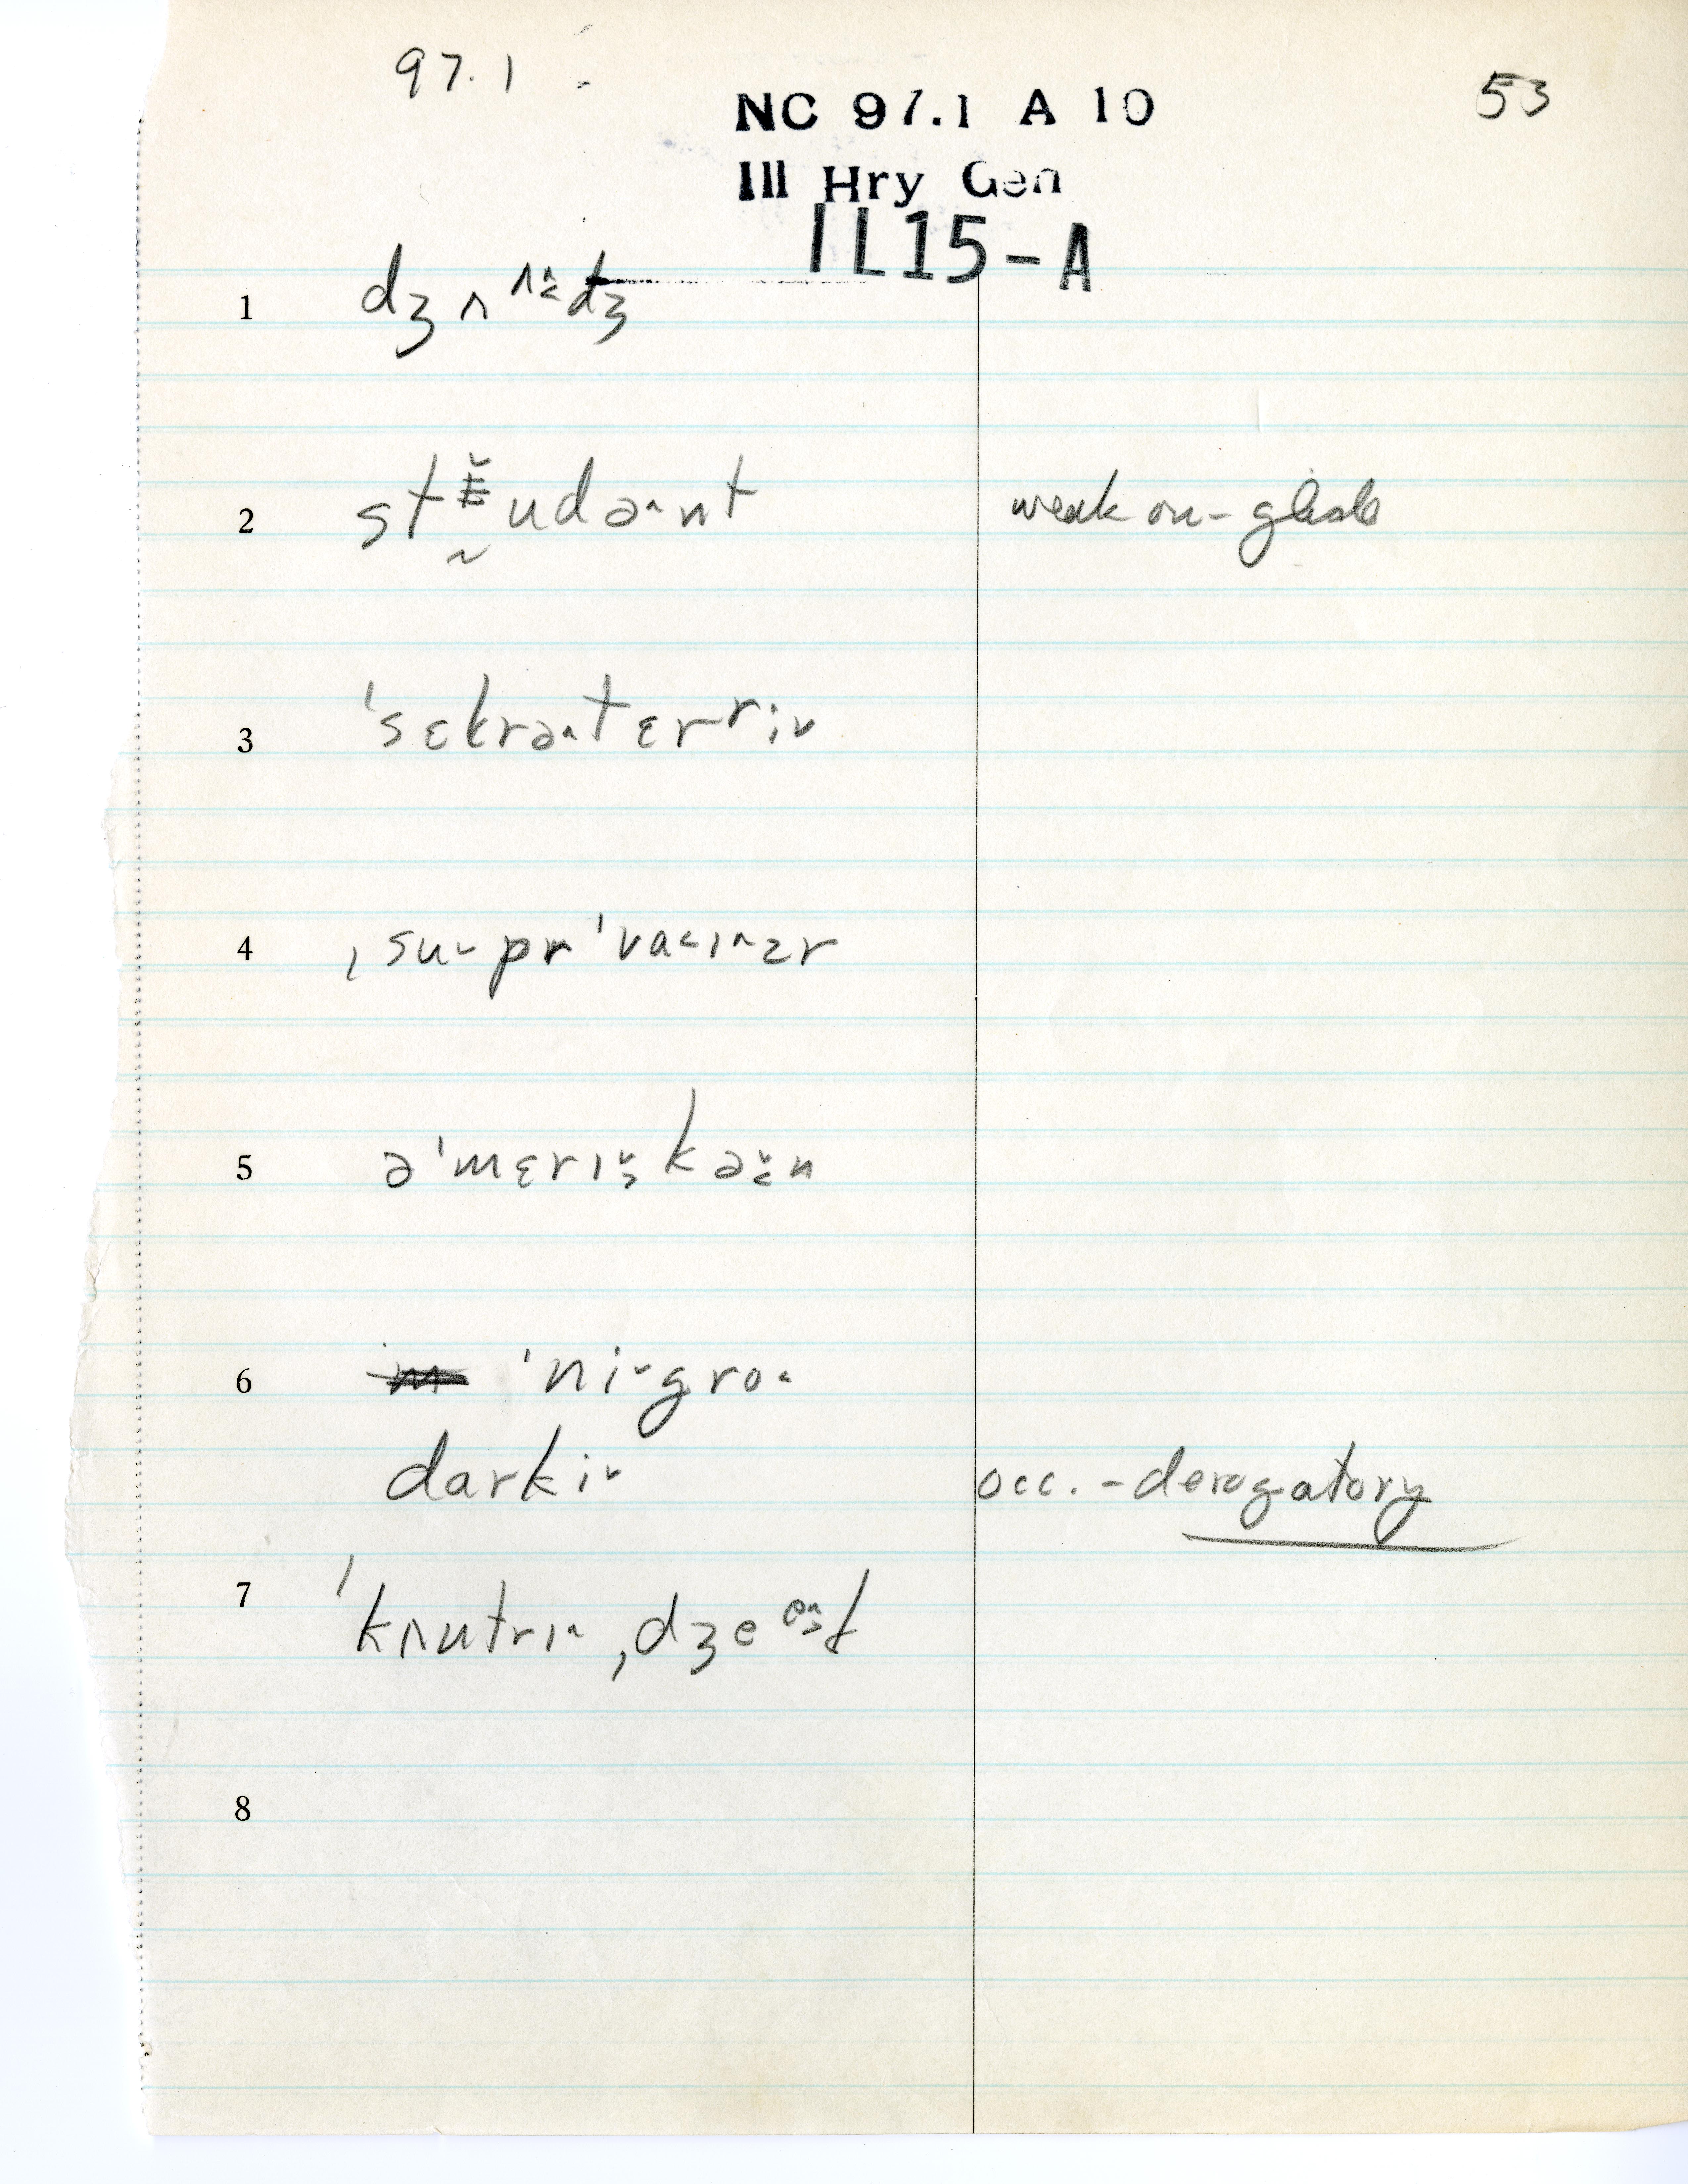 97.1
53
NC 97.1 A 10
Ill Hry Gen
IL15-A
1 dʒʌ ᶺ˄˂dʒ
2 st ̆ʉdə˄nt weak on-glide
3 ˈsɛkrə˄tɛrʳi˅
4 ˌsu˅prˈva˂ɪ˄zr
5 əˈmɛrɪ˅˃kə˅˂n
6 ˈni˅gro˂
darki˅ occ. - derogatory
7 ˈkʌntrɪ˄ ˌdʒeᵊ˄˃k
8